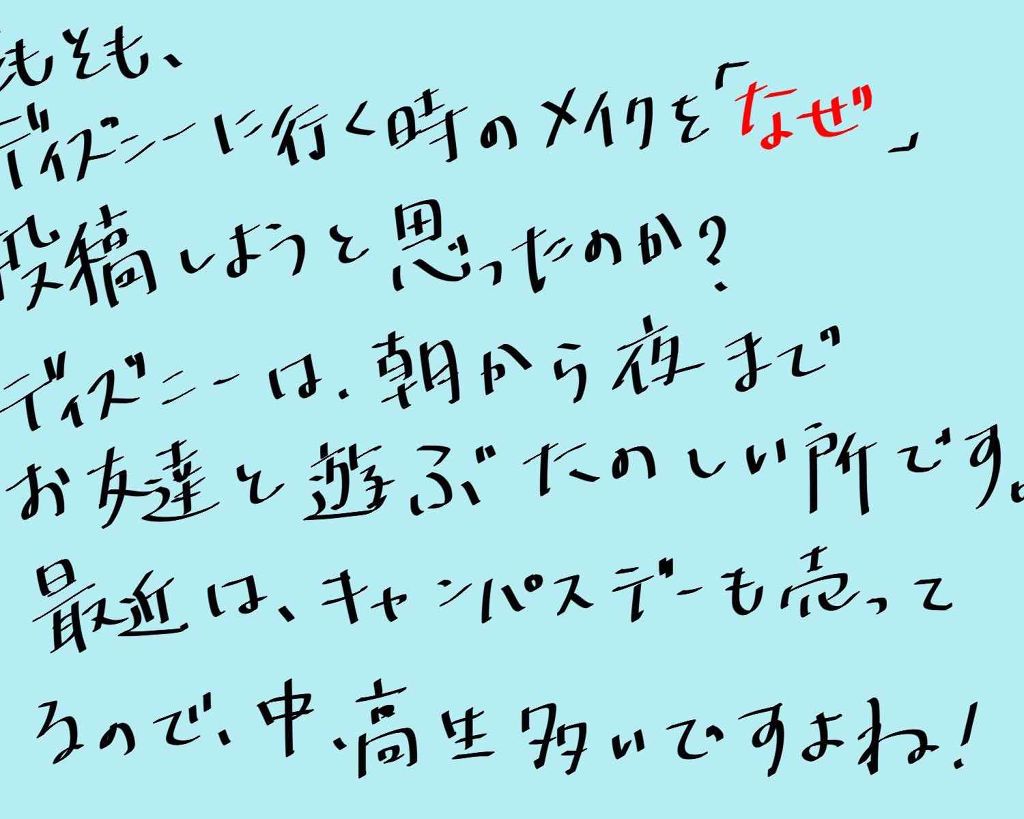 もそも、
ディズニーに行く時のメイクを「なぜ」
投稿しようと思ったのか?
ディズニーは、朝から夜まで
お友達と遊ぶたのしい所です。
最近は、キャンパスデーも売って
るので、中、高生多いですよね!